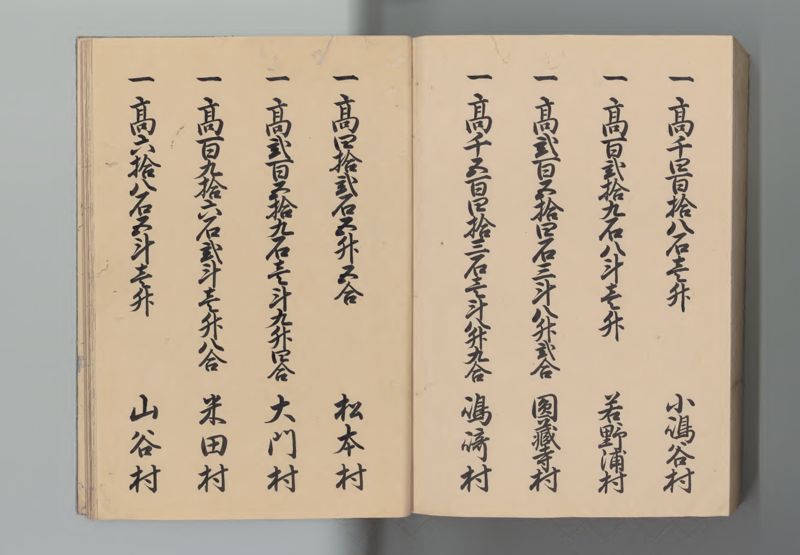 一 高千四百拾八石壱升 小嶋谷村
一 高百弐拾九石八斗壱升 若野浦村
一 高弐百五拾四石三斗八升弐合 圓蔵寺村
一 高千五百四拾三石壱斗八升九合 嶋崎村
一 高四拾弐石五升五合 松本村
一 高弐百五拾九石壱斗九升四合 大門村
一 高百九拾六石弐斗壱升八合 米田村
一 高六拾八石五斗壱升 山谷村